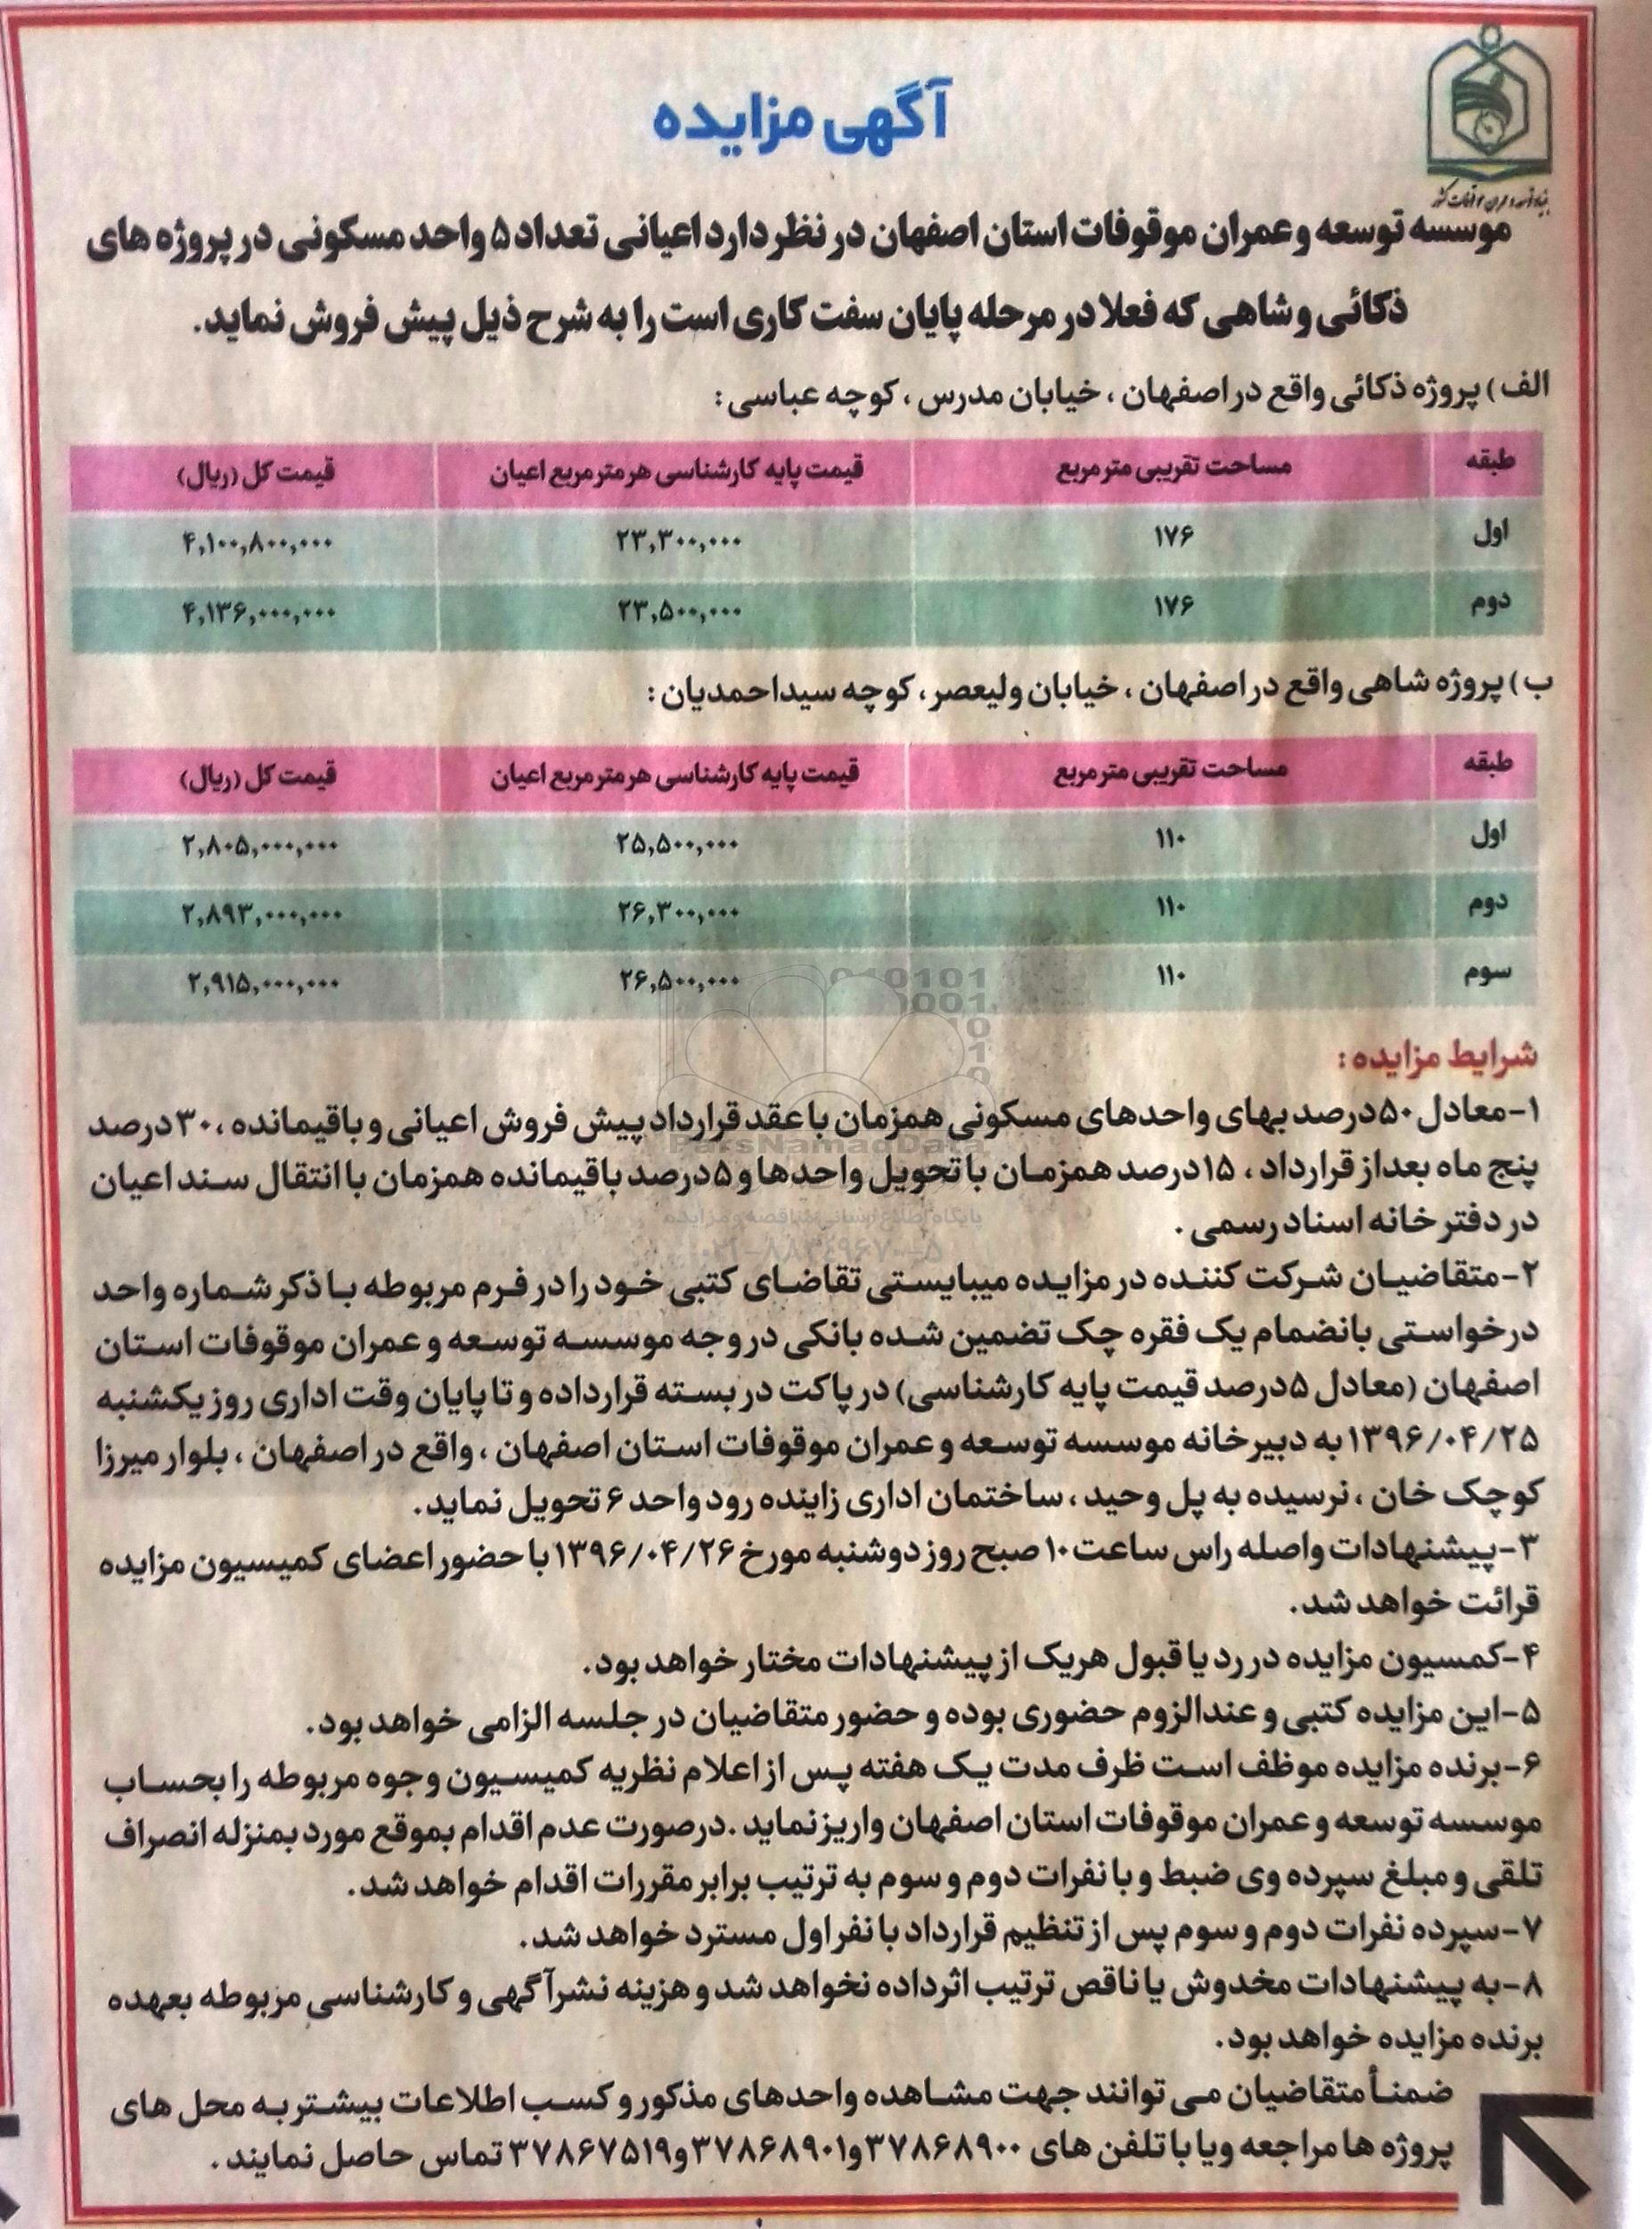 بنیاد توسعه و عمران موقوفات کشور
آگهی مزایده
موسسه توسعه و عمران موقوفات استان اصفهان در نظر دارد اعیانی تعداد ۵ واحد مسکونی در پروژه های
ذکائی و شاهی که فعلا در مرحله پایان سفت کاری است را به شرح ذیل پیش فروش نماید.
الف) پروژه ذکائی واقع در اصفهان ، خیابان مدرس ، کوچه عباسی :
طبقه مساحت تقریبی متر مربع قیمت پایه کارشناسی هر متر مربع اعیان قیمت کل (ریال)
اول ۱۷۶ ۲۳,۳۰۰,۰۰۰ ۴,۱۰۰,۸۰۰,۰۰۰
دوم ۱۷۶ ۲۳,۵۰۰,۰۰۰ ۴,۱۳۶,۰۰۰,۰۰۰
ب) پروژه شاهی واقع در اصفهان ، خیابان ولیعصر ، کوچه سیداحمدیان :
طبقه مساحت تقریبی متر مربع قیمت پایه کارشناسی هر متر مربع اعیان قیمت کل (ریال)
اول ۱۱۰ ۲۵,۵۰۰,۰۰۰ ۲,۸۰۵,۰۰۰,۰۰۰
دوم ۱۱۰ ۲۶,۳۰۰,۰۰۰ ۲,۸۹۳,۰۰۰,۰۰۰
سوم ۱۱۰ ۲۶,۵۰۰,۰۰۰ ۲,۹۱۵,۰۰۰,۰۰۰
شرایط مزایده :
۱-معادل ۵۰درصد بهای واحدهای مسکونی همزمان با عقد قرارداد پیش فروش اعیانی و باقیمانده ، ۳۰درصد
پنج ماه بعداز قرارداد ، ۱۵درصد همزمـان با تحویل واحدها و ۵درصد باقیمانده همزمان با انتقال سـند اعیان
در دفتر خانه اسناد رسمی .
۲-متقاضیـان شـرکت کننـده در مزایـده میبایسـتی تقاضـای کتبی خـود را در فـرم مربوطه بـا ذکر شـماره واحد
درخواسـتی بانضمام یک فقره چک تضمین شده بانکی در وجه موسسـه توسـعه و عمران موقوفات اسـتان
اصفهان (معادل ۵درصد قیمت پایه کارشناسی) در پاکت در بسته قرارداده و تا پایان وقت اداری روز یکشنبه
۱۳۹۶/۰۴/۲۵ به دبیرخانه موسسه توسعه و عمران موقوفات استان اصفهان ، واقع در اصفهان ، بلوار میرزا
کوچک خان ، نرسیده به پل وحید ، ساختمان اداری زاینده رود واحد ۶ تحویل نماید.
۳-پیشنهادات واصله راس ساعت۱۰ صبح روز دوشنبه مورخ ۱۳۹۶/۰۴/۲۶ با حضور اعضای کمیسیون مزایده
قرائت خواهد شد.
۴-کمسیون مزایده در رد یا قبول هریک از پیشنهادات مختار خواهد بود.
۵-این مزایده کتبی و عندالزوم حضوری بوده و حضور متقاضیان در جلسه الزامی خواهد بود.
۶-برنده مزایده موظف اسـت ظرف مدت یـک هفته پـس از اعلام نظریه کمیسـیون وجوه مربوطه را بحسـاب
موسسـه توسعه و عمران موقوفات استان اصفهان واریز نماید .درصورت عدم اقدام بموقع مورد بمنزله انصراف
تلقی و مبلغ سپرده وی ضبط و با نفرات دوم و سوم به ترتیب برابر مقررات اقدام خواهد شد.
۷-سپرده نفرات دوم و سوم پس از تنظیم قرارداد با نفر اول مسترد خواهد شد.
۸-به پیشنهادات مخدوش یا ناقص ترتیب اثر داده نخواهد شد و هزینه نشر آگهی و کارشناسی مربوطه بعهده
برنده مزایده خواهد بود.
ضمنـأ متقاضیان مـی توانند جهت مشـاهده واحدهای مذکور و کسـب اطلاعات بیشـتر بـه محل های
پروژه ها مراجعه ویا با تلفن های ۳۷۸۶۸۹۰۰ و ۳۷۸۶۸۹۰۱ و ۳۷۸۶۷۵۱۹ تماس حاصل نمایند .
ParsNamadData
پایگاه اطلاع رسانی مناقصه و مزایده
۰۲۱-۸۸۳۴۹۶۷۰-۵